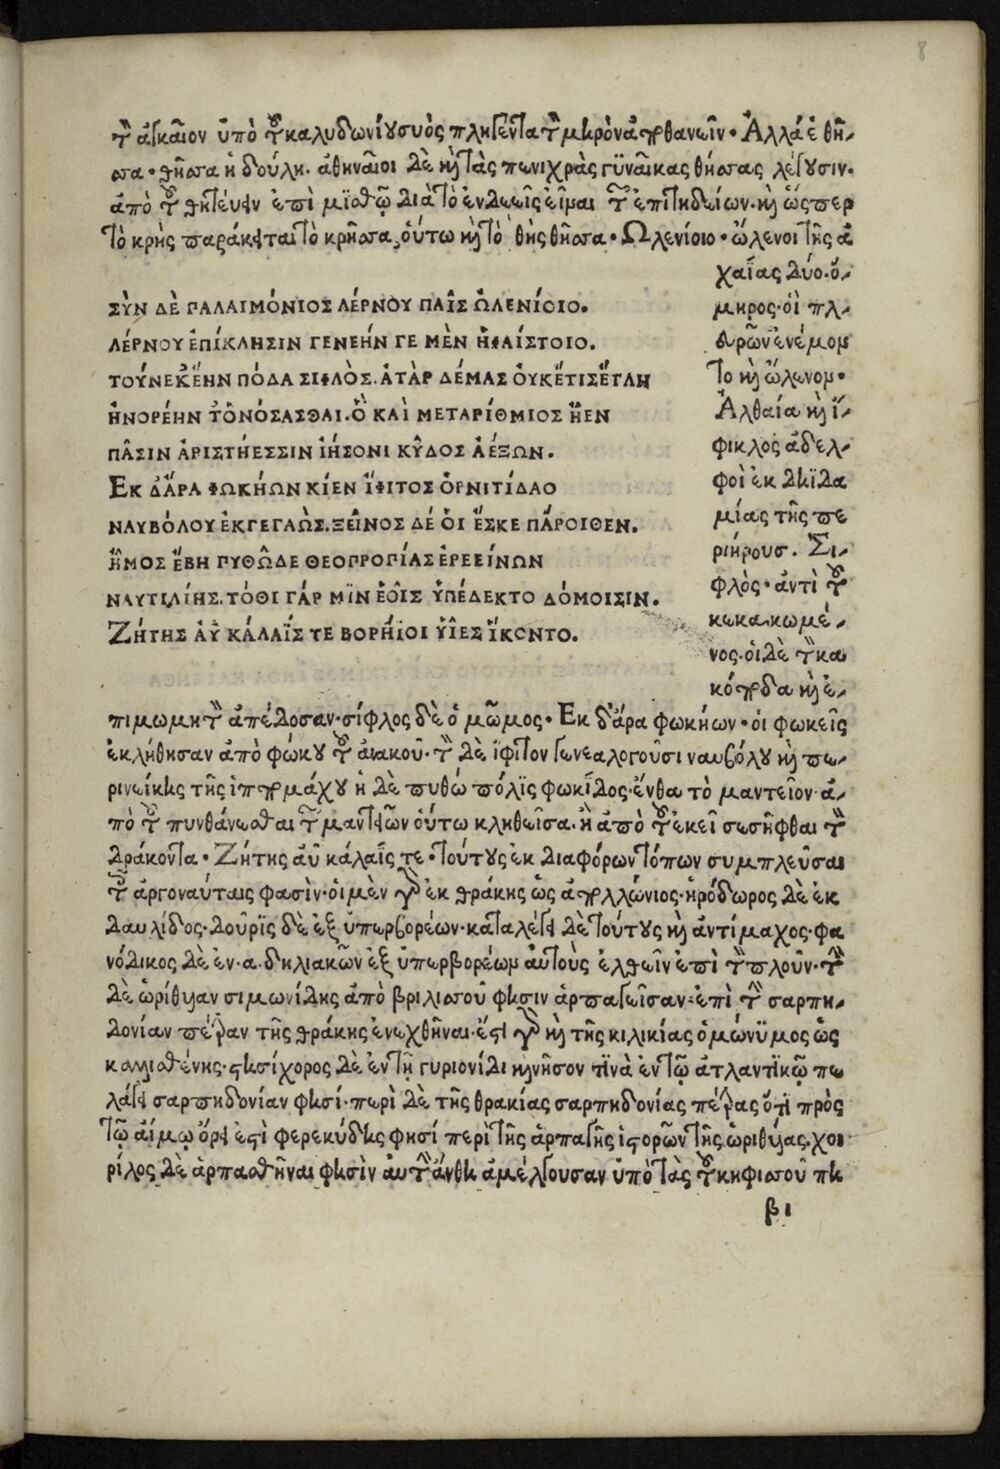 8
τὸν ἀγκαῖον ὑπὸ τοῦ καλυδωνίου συὸς πληγέντα τὸν μηρὸν ἀποθανεῖν· Ἀλλά ἑ θῆσ-
σα· θῆσσα ἡ δούλη. ἀθηναῖοι δὲ καὶ τὰς πενιχρὰς γυναῖκας θήσσας λέγουσιν.
ἀπὸ τοῦ θητεύειν ἐπὶ μισθῷ διὰ τὸ ἐνδεεῖς εἶναι τῶν ἐπιτηδείων. καὶ ὥσπερ
τὸ κρής παράκειται τὸ κρῆσσα, οὕτω καὶ τὸ θής θῆσσα· Ὠλενίοιο· ὤλενοι τῆς ἀ
χαΐας δύο. ὅ-
μηρος. οἱ πλ-
ευρῶν' ἐνέμον
το καὶ ὤλενον·
Ἀλθαία καὶ ἴ-
φικλος ἀδελ-
φοὶ ἐκ δηϊδα
μίας τῆς πε
ριήρους. Σι-
φλὸς· ἀντὶ τοῦ
κεκακωμέ-
νος. οἱ δὲ τὸν κα
κόποδα καὶ ἐ-
ΣῪΝ ΔῈ ΠΑΛΑΙΜΌΝΙΟΣ ΛΈΡΝΟΥ ΠΑΪ͂Σ ὨΛΕΝΊΟΙΟ.
ΛΈΡΝΟΥ ἘΠΊΚΛΗΣΙΝ ΓΕΝΕΉΝ ΓΕ ΜῈΝ ἩΦΑΊΣΤΟΙΟ.
ΤΟΎΝΕΚ' ἜΗΝ ΠΌΔΑ ΣΙΦΛῸΣ. ἈΤᾺΡ ΔΈΜΑΣ ΟΥΚΈΤΙΣ ἜΤΛΗ
ἨΝΟΡΈΗΝ Τ' ὈΝΌΣΑΣΘΑΙ. Ὃ ΚΑῚ ΜΕΤΑΡΊΘΜΙΟΣ ἮΕΝ
ΠΑ͂ΣΙΝ ἈΡΙΣΤΉΕΣΣΙΝ ἸΉΣΟΝΙ ΚΥ͂ΔΟΣ ἈΈΞΩΝ.
ἘΚ Δ' ἌΡΑ ΦΩΚΉΩΝ ΚΊΕΝ ἼΦΙΤΟΣ ὈΡΝΙΤΊΔΑΟ
ΝΑΥΒΌΛΟΥ ἘΚΓΕΓΑΏΣ. ΞΕΙ͂ΝΟΣ ΔΈ ΟΙ ἜΣΚΕ ΠΆΡΟΙΘΕΝ.
ἮΜΟΣ ἜΒΗ ΠΥΘΩ͂ΔΕ ΘΕΟΠΡΟΠΊΑΣ ἘΡΕΕΊΝΩΝ
ΝΑΥΤΙΛΊΗΣ. ΤΌΘΙ ΓΆΡ ΜΙΝ ἙΟΙ͂Σ ὙΠΈΔΕΚΤΟ ΔΌΜΟΙΣΙΝ.
ΖΉΤΗΣ ΑΥ͂ ΚΆΛΑΪΣ ΤΕ ΒΟΡΉΙΟΙ ΥἿΕΣ ἽΚΟΝΤΟ.
πιμωμητὸν ἀπέδοσαν. σίφλος δὲ ὁ μῶμος· Ἐκ δ' ἄρα φωκήων· οἱ φωκεῖς
ἐκλήθησαν ἀπὸ φώκου τοῦ αἰακοῦ. τὸν δὲ ἴφιτον γενεαλογοῦσι ναυβόλου καὶ πε-
ρινείκης τῆς ἱππομάχου ἡ δὲ πυθώ πόλις φωκίδος. ἔνθα τὸ μαντεῖον. ἀ-
πὸ τοῦ πυνθάνεσθαι τῶν μαντειῶν οὕτω κληθεῖσα. ἢ ἀπὸ τοῦ ἐκεῖ σεσῆφθαι τὸν
δράκοντα· Ζήτης αὖ κάλαΐς τε· τούτους ἐκ διαφόρων τόπων συμπλεῦσαι
τοῖς ἀργοναύταις φασὶν. οἱ μὲν γὰρ ἐκ θράκης ὡς ἀπολλώνιος. ἡρόδωρος δὲ ἐκ
δαυλίδος. δοῦρις δὲ ἐξ ὑπερβορέων. καταλέγει δὲ τούτους καὶ ἀντίμαχος. φα
νόδικος δὲ ἐν .α. δηλιακῶν ἐξ ὑπερβορέων αὐτοὺς ἐλθεῖν ἐπὶ τὸν πλοῦν. τὴν
δὲ ὠρίθυιαν σιμωνίδης ἀπὸ βριλισσοῦ φησιν ἁρπαγεῖσαν ἐπὶ τὴν σαρπη-
δονίαν πέτραν τῆς θράκης ἐνεχθῆναι. ἔστι γὰρ καὶ τῆς κιλικίας ὁμώνυμος ὡς
καλλισθένης. στησίχορος δὲ ἐν τῇ γυριονίδι καὶ νῆσον τινὰ ἐν τῷ ἀτλαντικῷ πε
λάγει σαρπηδονίαν φησί. περὶ δὲ τῆς θρακίας σαρπηδονίας πέτρας ὅτι πρὸς
τῷ αἵμῳ ὄρει ἐστὶ φερεκύδης φησί περὶ τῆς ἁρπαγῆς ἱστορῶν τῆς ὠριθυίας. χοι
ρίλος δὲ ἁρπασθῆναι φησὶν αὐτὴν ἄνθη ἀμέλγουσαν ὑπὸ τὰς τοῦ κηφισσοῦ πη
βι